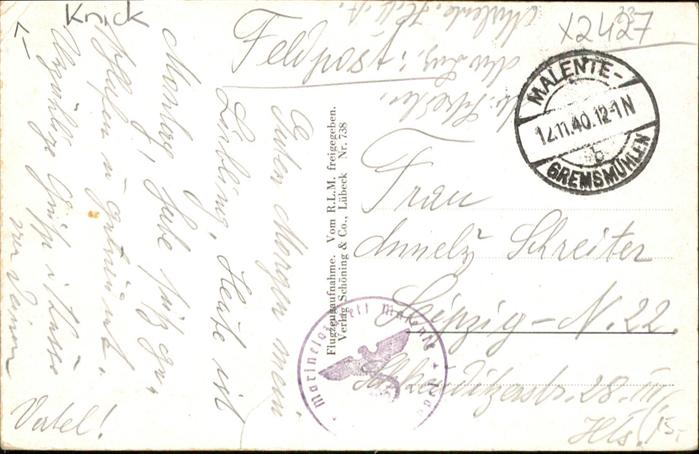 Knick
x2427
Feldpost!
Malente
MALENTE-
12.11.40.12-1N
b
GREMSMÜHLEN
Guten Morgen mein
Liebling, Heute ist
Montag, habe
Schlafen u geträumt.
Grüße u. Küsse
von Deinem
Vatel!
Flugzeugaufnahme. Vom R.L.M. freigegeben.
Verlag Schöning & Co., Lübeck Nr. 738
Frau
Schreiter
Leipzig-N. 22.
28. III
Hls.
15,-
Marinelazarett Malente